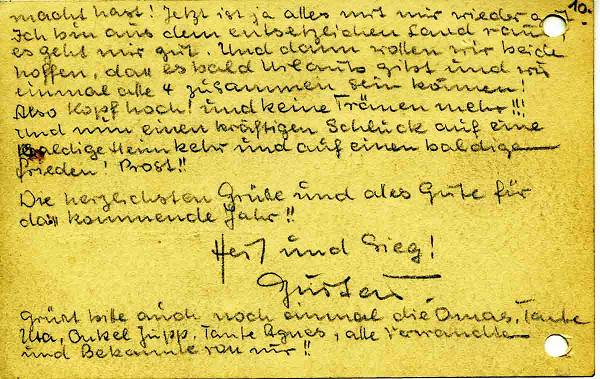 10.
macht hast! Jetzt ist ja alles mit mir wieder gut.
Ich bin aus dem entsetzlichen Land raus,
es geht mir gut. Und dann wollen wir beide
hoffen, das es bald Urlaub gibt und wir
einmal alle 4 zusammen sein können!
Also Kopf hoch! und keine Tränen mehr!!!
Und nun einen kräftigen Schluck auf eine
baldige Heimkehr und auf einen baldigen
Frieden! Prost!!
Die herzlichsten Grüße und alles Gute für
das kommende Jahr!!
Heil und Sieg!
Gustav
Grüßt bitte auch noch einmal die Omas, Tante
Uta, Onkel Jupp, Tante Agnes, alle Verwandte
und Bekannte von mir!!